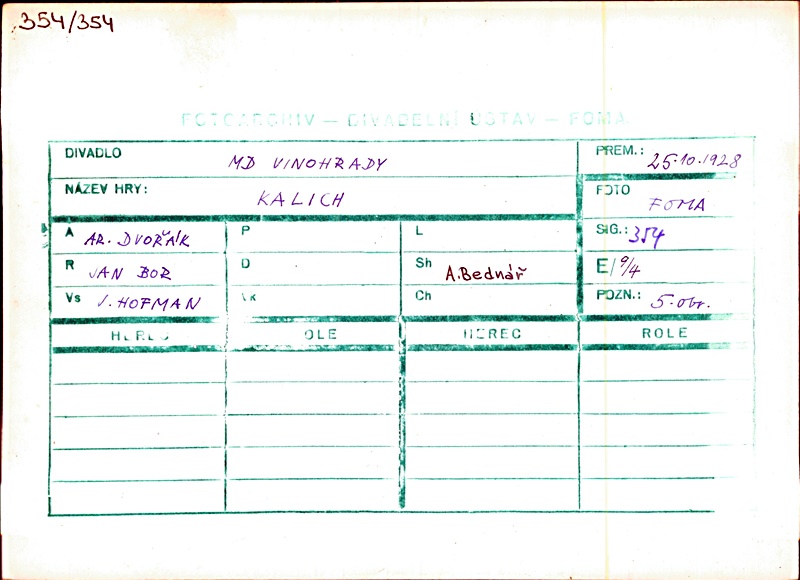 354/354
FOTOARCHIV — DIVADELNÍ ÚSTAV — FOMA
DIVADLO MD VINOHRADY PREM.: 25.10.1928
NÁZEV HRY: KALICH FOTO FOMA
A AR. DVOŘÁK P L SIG.: 354
R JAN BOR D Sh A.Bednář E/ 9/4
Vs V. HOFMAN Vk Ch POZN.: 5.obr.
HEREC ROLE HEREC ROLE